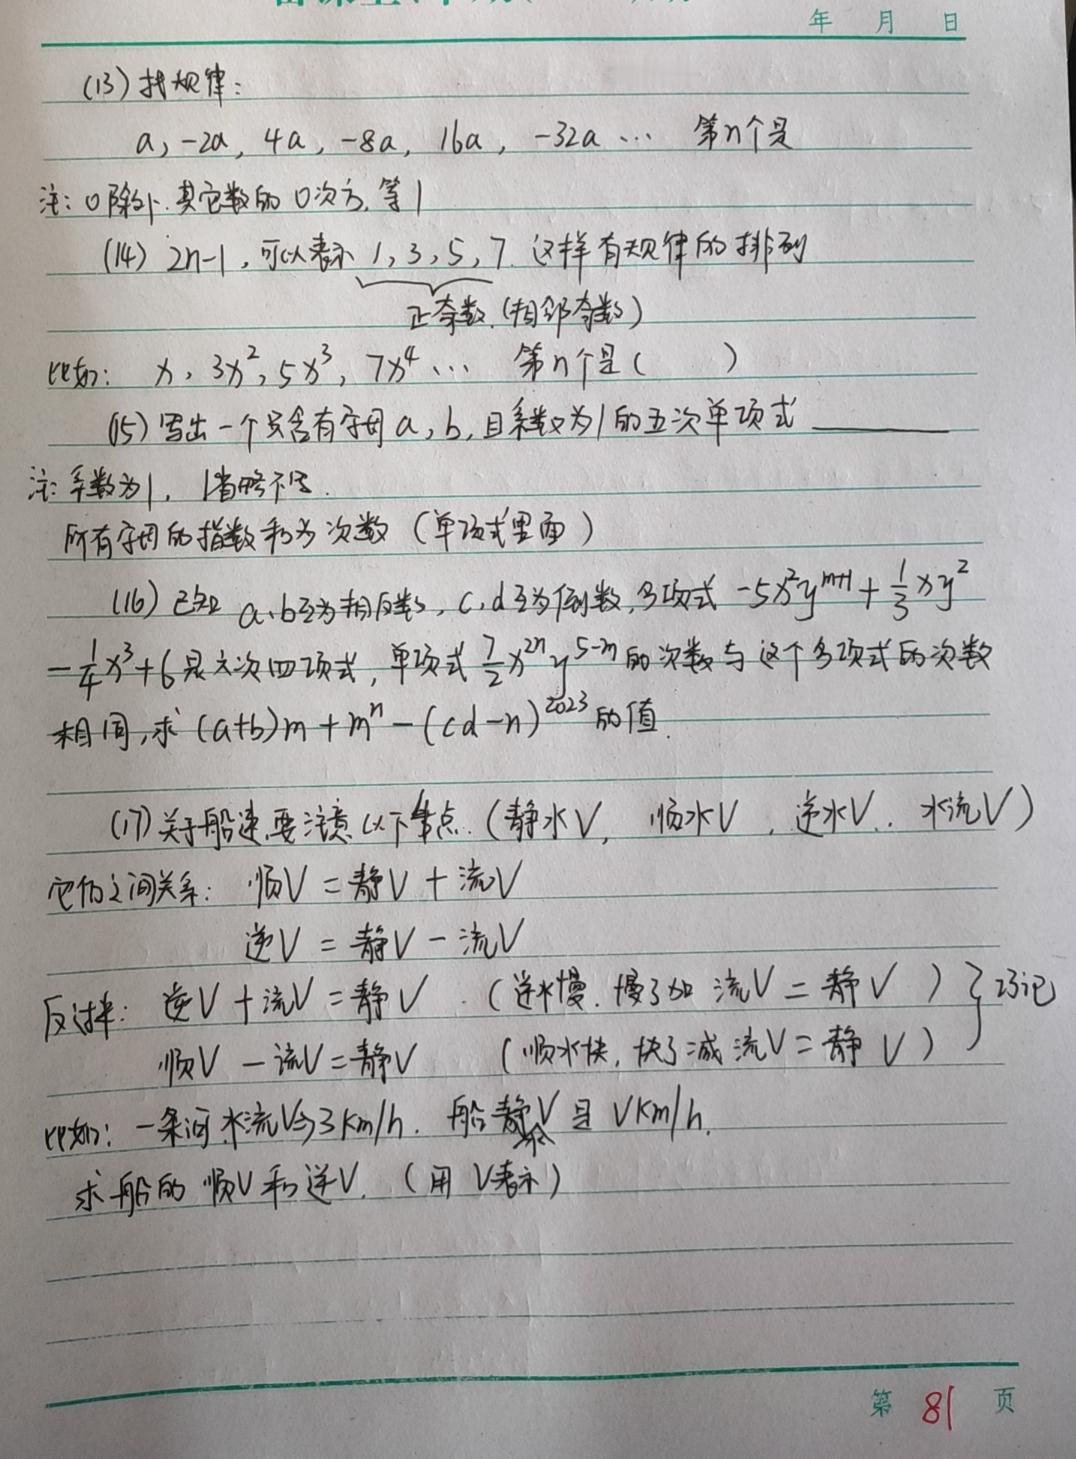 年 月 日
(13) 找规律:
a, -2a, 4a, -8a, 16a, -32a … 第n个是
注: 0除外. 其它数的0次方, 等1
(14) 2n-1, 可以表示 1, 3, 5, 7. 这样有规律的排列
正奇数. (相邻奇数)
比如: x, 3x², 5x³, 7x⁴ … 第n个是( )
(15) 写出一个只含有字母a, b, 且系数为1的五次单项式 ______
注: 系数为1, 1省略不写.
所有字母的指数和为次数 (单项式里面)
(16) 已知 a、b互为相反数, c, d互为倒数, 多项式 -5x²y^{m+1} + \frac{1}{3}xy²
-\frac{1}{4}x³+6 是六次四项式, 单项式 \frac{7}{2}x^{2n}y^{5-m} 的次数与这个多项式的次数
相同, 求 (a+b)m + mⁿ - (cd-n)²⁰²³ 的值.
(17) 关于船速, 要注意以下几点. (静水V, 顺水V, 逆水V, 水流V)
它们之间关系: 顺V = 静V + 流V
逆V = 静V - 流V
反过来: 逆V + 流V = 静V. (逆水慢, 慢了加流V = 静V) } 巧记
顺V - 流V = 静V (顺水快, 快了减流V = 静V)
比如: 一条河水流V为3km/h. 船静水V是 Vkm/h.
求船的顺V和逆V. (用V表示)
第 81 页